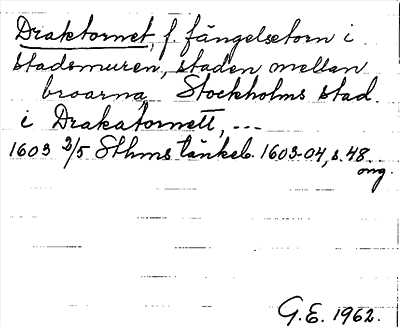 Draktornet, f. fängelsetorn i
stadsmuren, staden mellan
broarna, Stockholms stad.
i Drakatornett, ---
1603 3/5 Sthms tänkeb. 1603-04, s. 48
ong.
G.E. 1962.